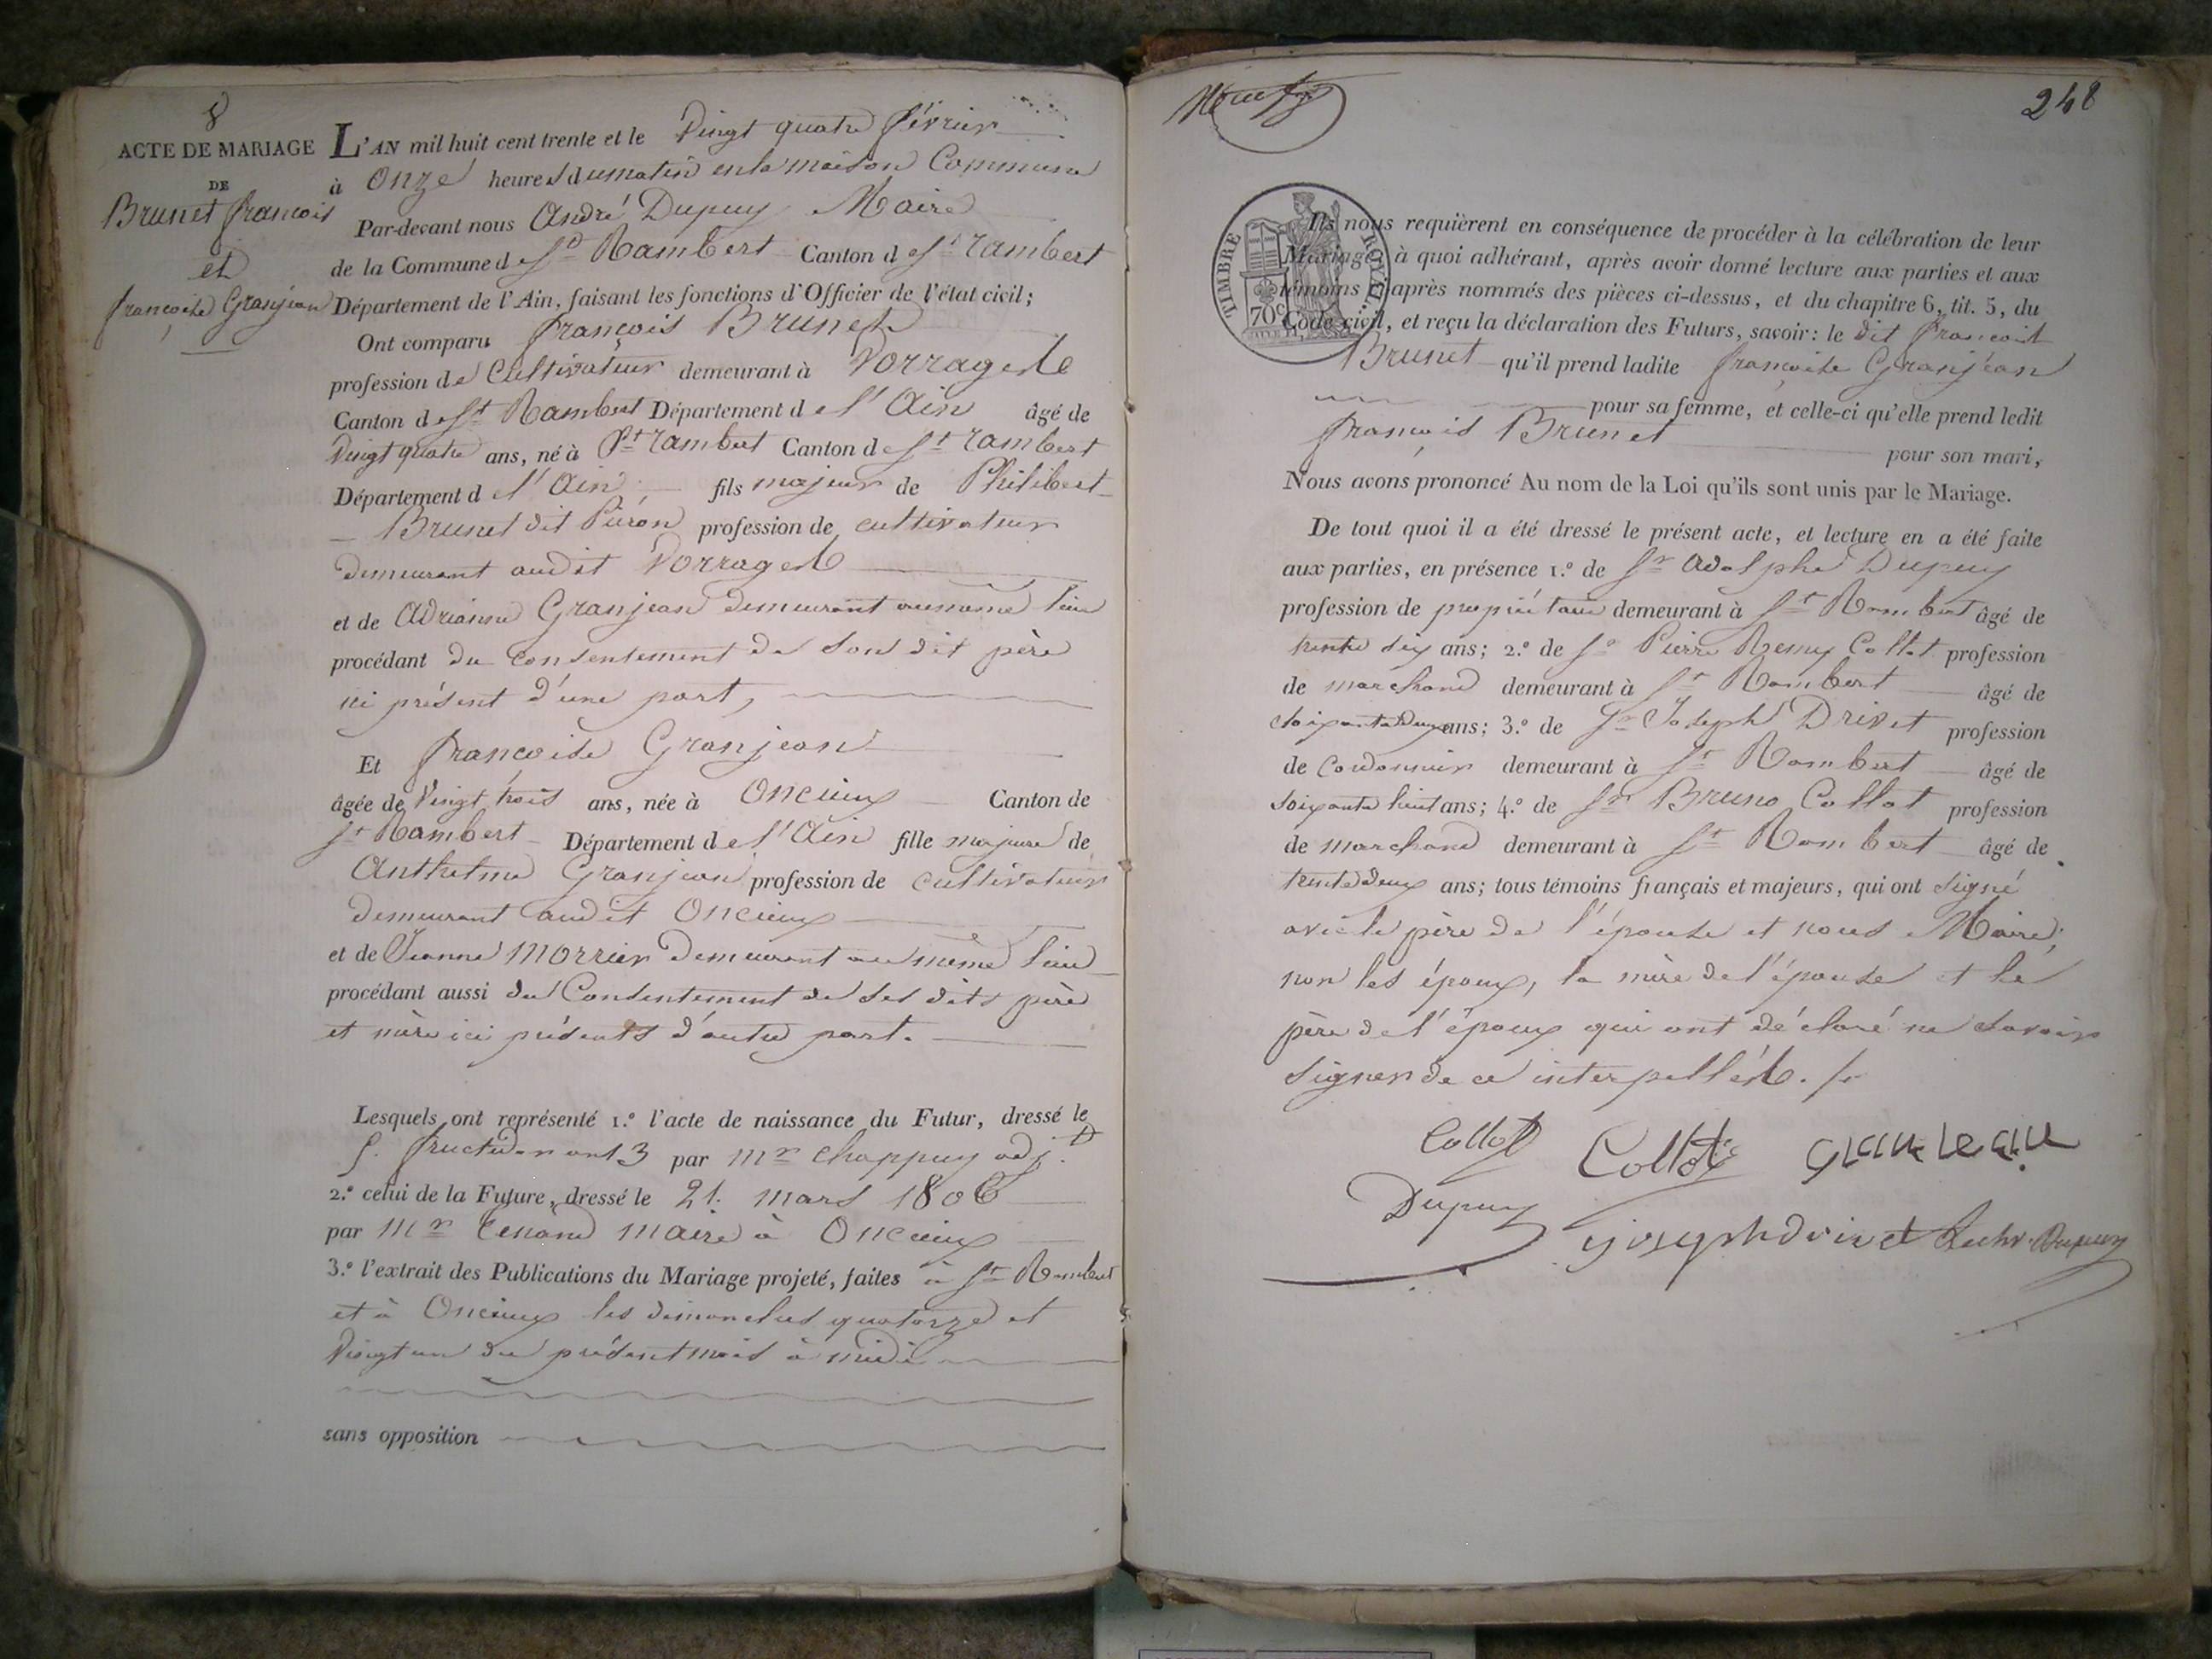 8
ACTE DE MARIAGE
DE
Brunet françois
et
françoise Granjean
L'AN mil huit cent trente et le Vingt quatre février
à Onze heures du matin en la maison Commune
Par-devant nous André Dupuy Maire
de la Commune de St Rambert Canton de St rambert
Département de l'Ain, faisant les fonctions d'Officier de l'état civil;
Ont comparu françois Brunet
profession de Cultivateur demeurant à Vorrages
Canton de St Rambert Département de l'Ain âgé de
Vingt quatre ans, né à St rambert Canton de St rambert
Département de l'Ain fils majeur de Philibert
Brunet dit Piéron profession de cultivateur
demeurant audit Vorrages
et de Adrianne Granjean demeurant au même lieu
procédant du consentement de son dit père
ici présent d'une part,
Et françoise Granjean
âgée de Vingt trois ans, née à Oncieux Canton de
St Rambert Département de l'Ain fille majeure de
Anthelme Granjean profession de cultivateur
demeurant audit Oncieux
et de Jeanne Morrier demeurant au même lieu
procédant aussi du Consentement de ses dits père
et mère ici présents d'autre part.
Lesquels ont représenté 1.º l'acte de naissance du Futur, dressé le
5. fructidor an 13 par Mr Chappuy adjt
2.º celui de la Future, dressé le 21. mars 1806
par Mr Tenand maire à Oncieux
3.º l'extrait des Publications du Mariage projeté, faites à St Rambert
et à Oncieux les dimanches quatorze et
Vingt un du présent mois à midi
sans opposition
248
TIMBRE ROYAL
70c
Ils nous requièrent en conséquence de procéder à la célébration de leur
Mariage, à quoi adhérant, après avoir donné lecture aux parties et aux
témoins après nommés des pièces ci-dessus, et du chapitre 6, tit. 5, du
Code civil, et reçu la déclaration des Futurs, savoir: le dit françois
Brunet qu'il prend ladite françoise Granjean
pour sa femme, et celle-ci qu'elle prend ledit
françois Brunet
pour son mari,
Nous avons prononcé Au nom de la Loi qu'ils sont unis par le Mariage.
De tout quoi il a été dressé le présent acte, et lecture en a été faite
aux parties, en présence 1.º de Sr Adolphe Dupuy
profession de propriétaire demeurant à St Rambert âgé de
trente six ans; 2.º de Sr Pierre Remy Collot profession
de marchand demeurant à St Rambert âgé de
soixante deux ans; 3.º de Sr Joseph Drivet profession
de Cordonnier demeurant à St Rambert âgé de
soixante huit ans; 4.º de Sr Bruno Collot profession
de marchand demeurant à St Rambert âgé de
trente deux ans; tous témoins français et majeurs, qui ont signé
avec le père de l'épouse et nous Maire,
non les époux, la mère de l'épouse et le
père de l'époux qui ont déclaré ne savoir
signer de ce interpellés.
Collot Collot granjean
Dupuy joseph drivet Dupuy